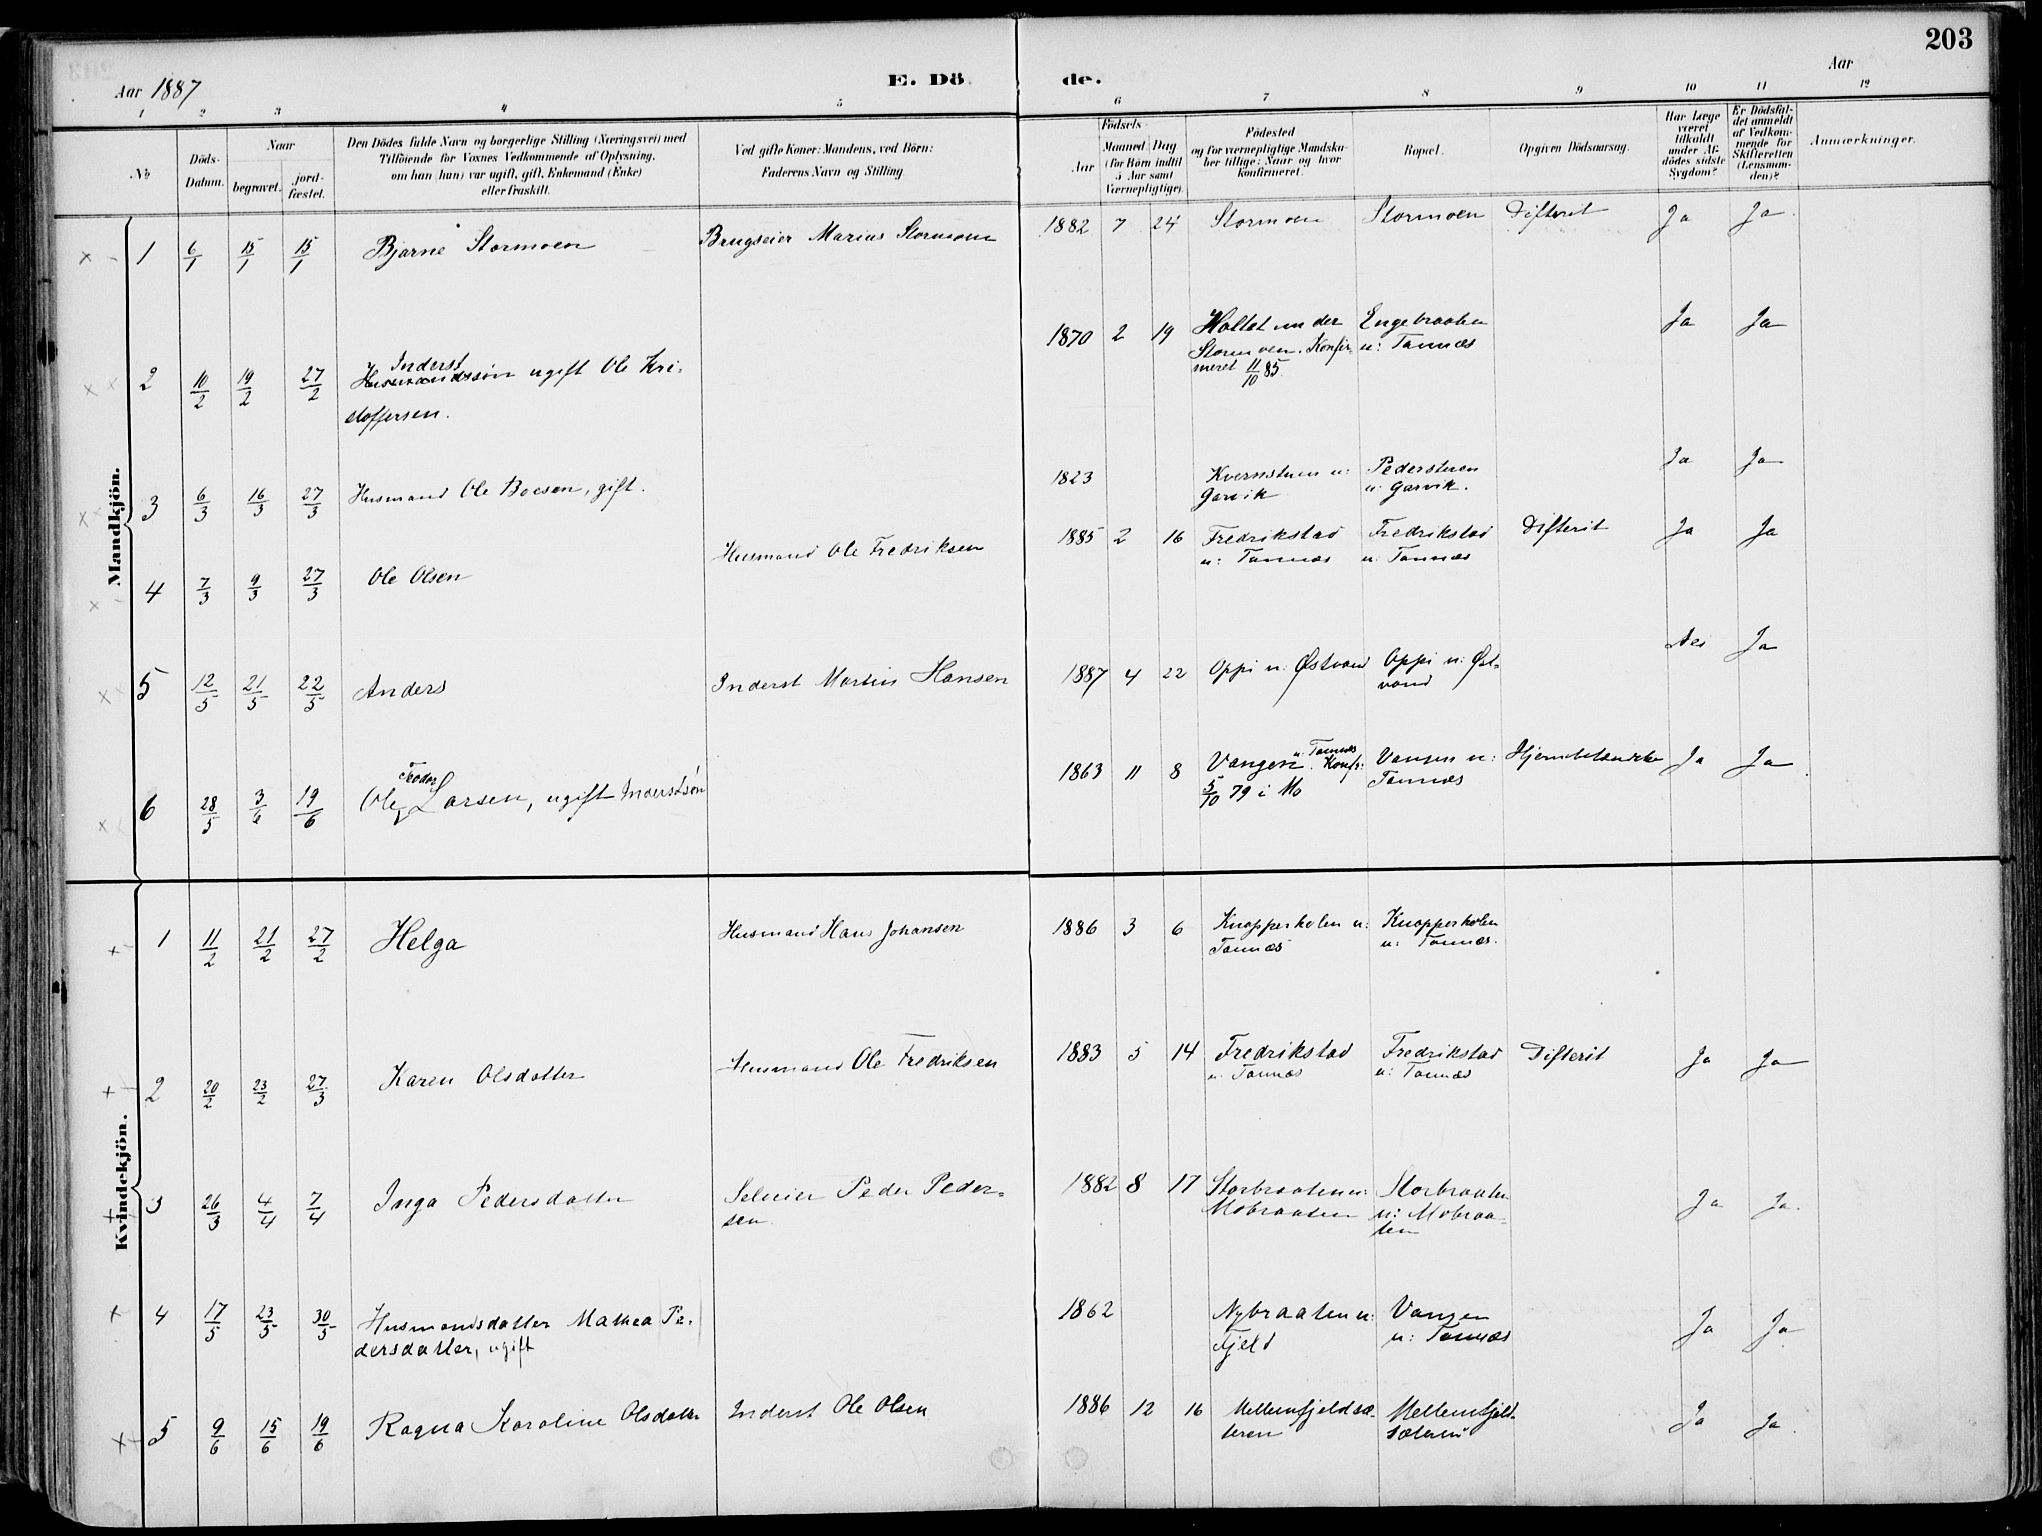 203
Aar 1887 E. Dö de. Aar
1 2 3 4 5 6 7 8 9 10 11 12
No
Döds-
Datum.
Naar
begravet.
jord-
fæstet.
Den Dödes fulde Navn og borgerlige Stilling (Næringsvei) med
Tilföiende for Voxnes Vedkommende af Oplysning,
om han (hun) var ugift, gift, Enkemand (Enke)
eller fraskilt.
Ved gifte Koner: Mandens, ved Börn:
Faderens Navn og Stilling.
Födsels-
Aar
Maaned Dag
(for Börn indtil
5 Aar samt
Værnepligtige).
Födested
og for værnepligtige Mandska-
ber tillige: Naar og hvor
konfirmeret.
Bopæl.
Opgiven Dödsaarsag.
Har Læge
været
tilkaldt
under Af-
dödes sidste
Sygdom?
Er Dödsfal-
det anmeldt
af Vedkom-
mende for
Skifteretten
(Lensman-
den)?
Anmærkninger.
Mandkjön.
1 6/1 15/1 15/1 Bjarne Stormoen Brugseier Marius Stormoen 1882 7 24 Stormoen Stormoen Difterit Ja Ja
2 10/2 19/2 27/2 Inderst Husmandssøn ugift Ole Kri-
stoffersen.
1870 2 19 Holtet under Engebraaten Ja Ja
Stormoen. Konfir- u: Tannæs
meret 11/10 85.
3 6/3 16/3 27/3 Husmand Ole Boesen, gift. 1823 Kvernstuen u: Pederstuen Ja Ja
Garvik u: Garvik.
4 7/3 9/3 27/3 Ole Olsen Husmand Ole Fredriksen 1885 2 16 Fredrikstad Fredrikstad Difterit Ja Ja
u: Tannæs u. Tannæs
5 12/5 21/5 22/5 Anders Inderst Martin Hansen 1887 4 22 Oppi u: Østvand Oppi u: Øst- Nei Ja
vand
6 28/5 3/6 19/6 Ole Teodor Larsen, ugift Inderstsøn 1863 11 8 Vangen u. Tannæs. Konf: Vangen u: Ja Ja
5/10 79 i Mo Tannæs
Kvindekjön.
1 11/2 21/2 27/2 Helga Husmand Hans Johansen 1886 3 6 Knapperholen u: Knapperholen
Tannæs u: Tannæs.
2 20/2 23/2 27/3 Karen Olsdatter Husmand Ole Fredriksen 1883 5 14 Fredrikstad Fredrikstad Difterit Ja Ja
u. Tannæs u: Tannæs
3 26/3 4/4 7/4 Inga Pedersdatter Selveier Peder Peder- 1882 8 17 Storbraaten u: Storbraaten Ja Ja.
sen. Mobraaten u: Mobraa-
ten
4 17/5 23/5 30/5 Husmandsdatter Mathea Pe- 1862 Nybraaten u: Vangen Ja Ja
dersdatter, ugift Fjeld u: Tannæs
5 9/6 15/6 19/6 Ragna Karoline Olsdatter Inderst Ole Olsen 1886 12 16 Mellemfjeldsæ- Mellemfjeld- Ja Ja.
teren sæteren